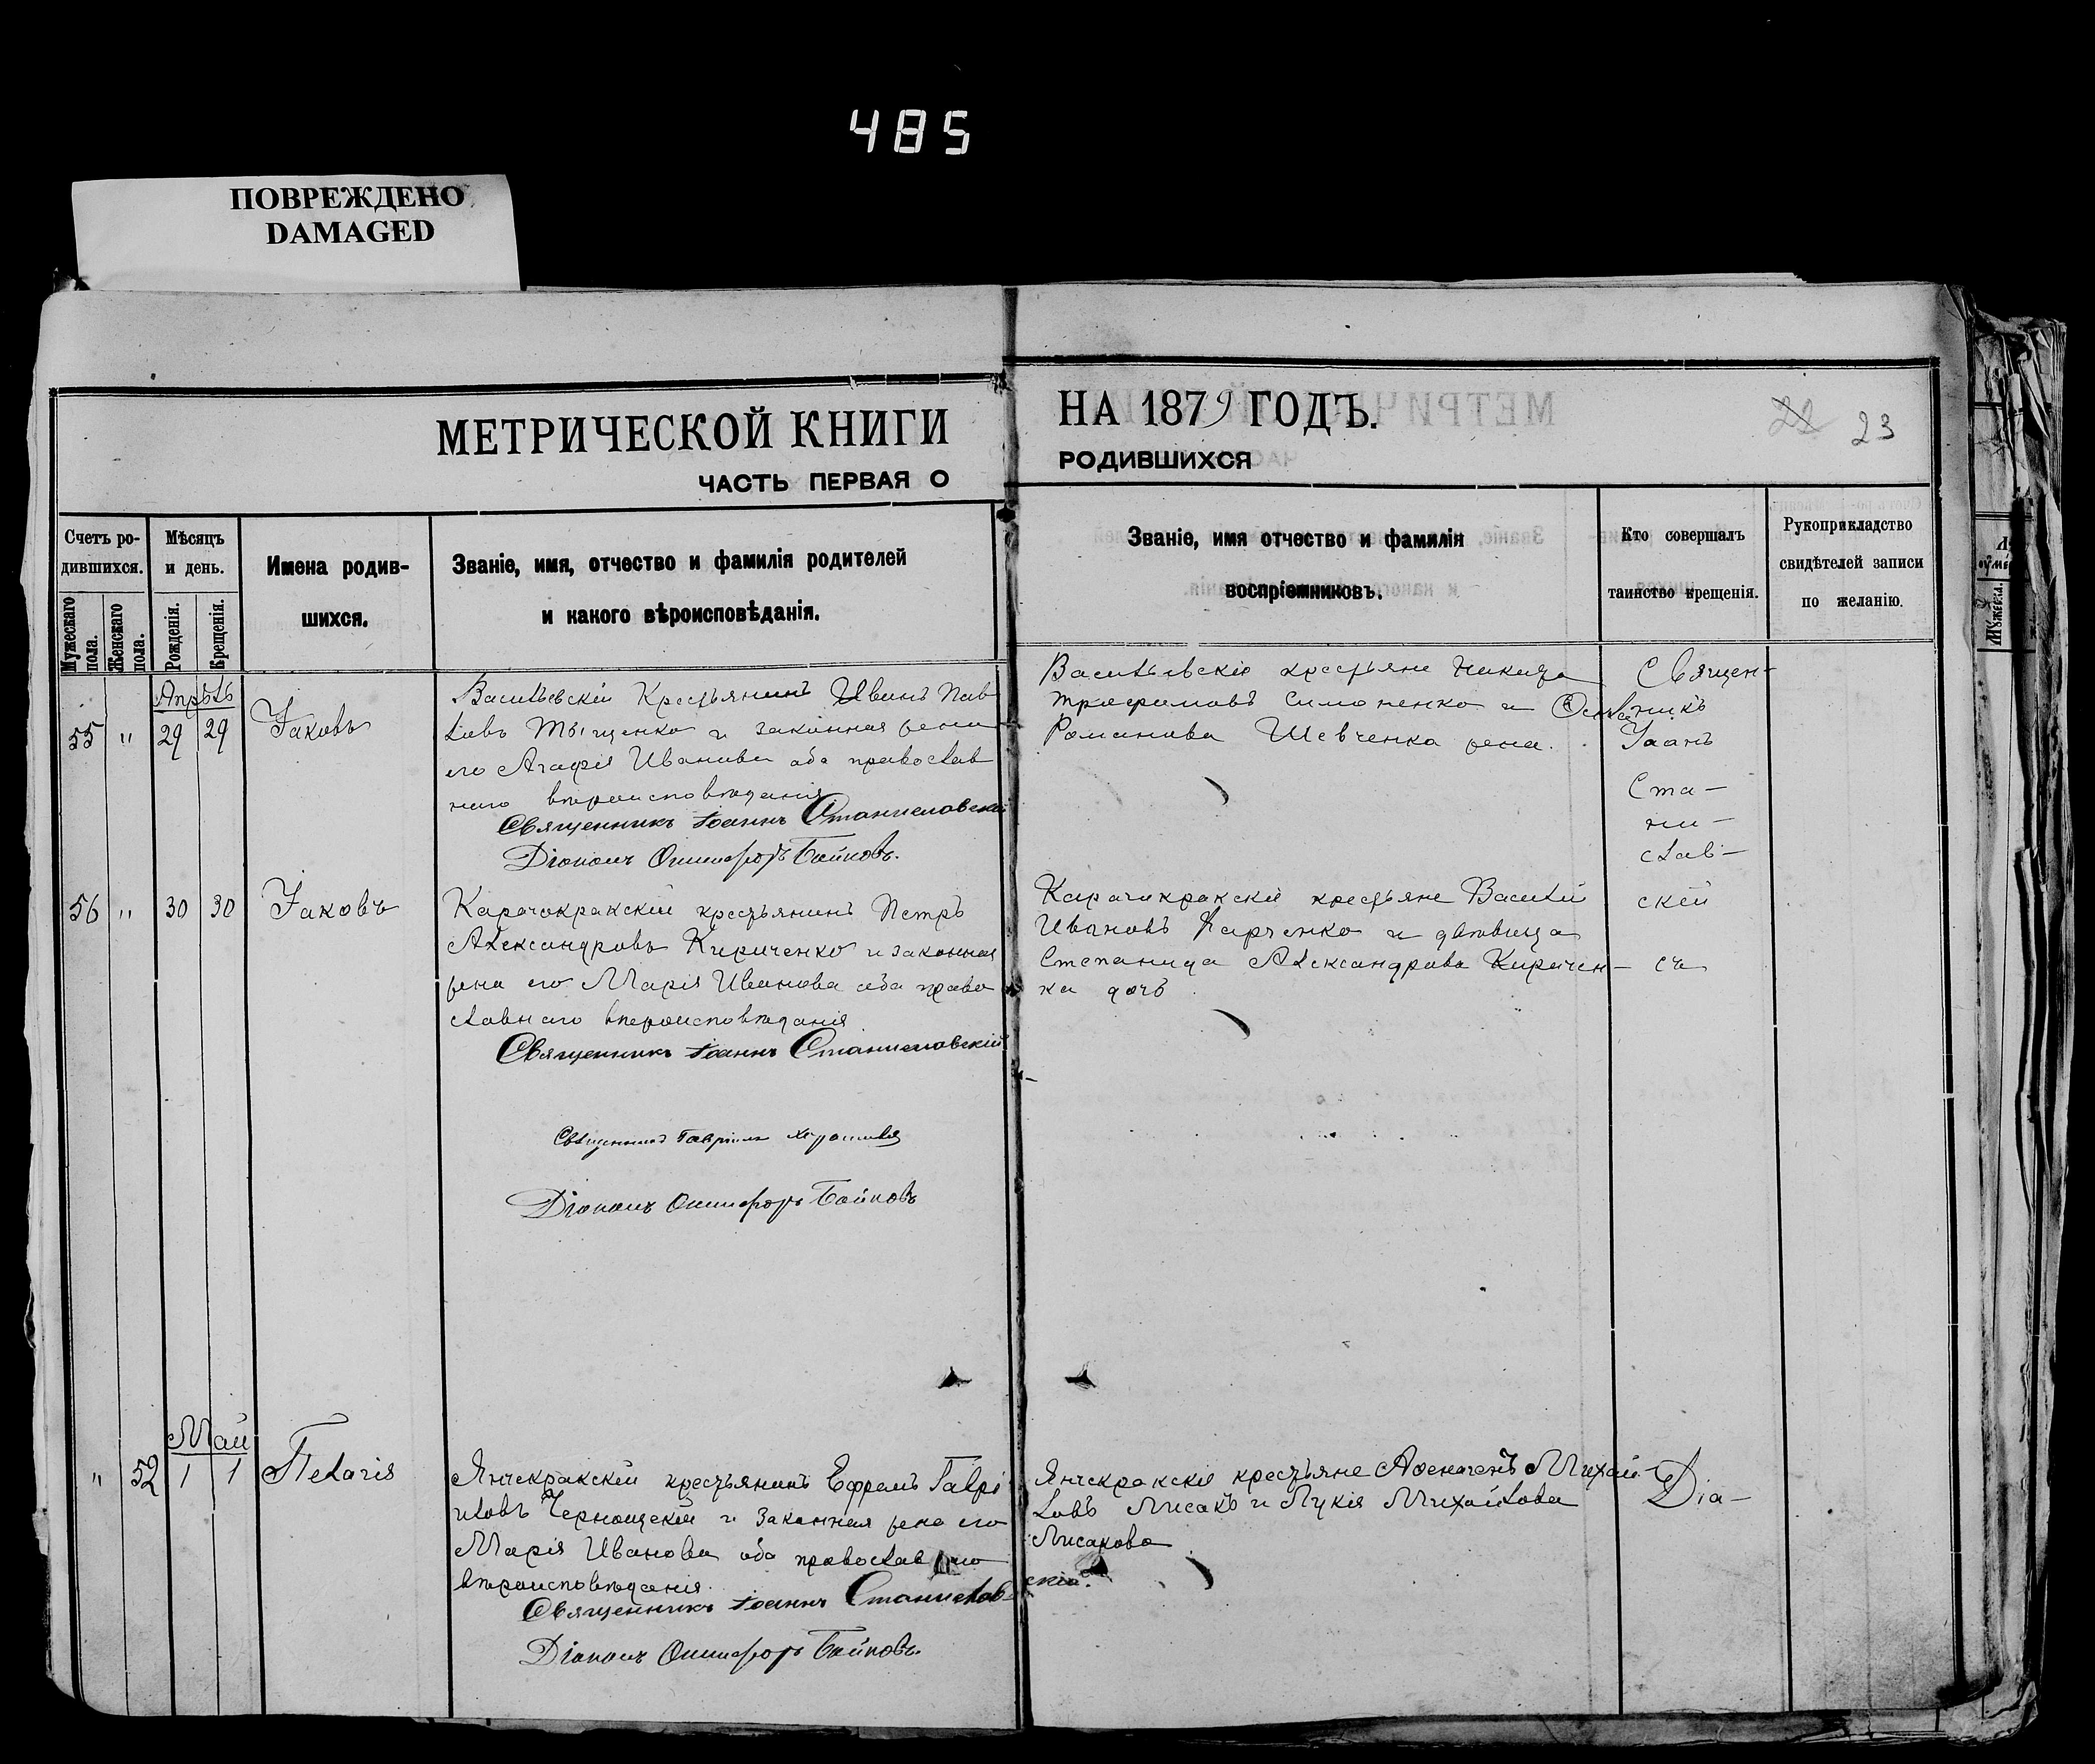 485
ПОВРЕЖДЕНО
DAMAGED
МЕТРИЧЕСКОЙ КНИГИ
НА 1879 ГОДЪ.
22 23
ЧАСТЬ ПЕРВАЯ О
РОДИВШИХСЯ
Счетъ ро-
дившихся.
Мужескаго
пола.
Женскаго
пола.
Мѣсяцъ
и день.
Рожденія.
Крещенія.
Имена родив-
шихся.
Званіе, имя, отчество и фамилія родителей
и какого вѣроисповѣданія.
Званіе, имя отчество и фамилія
воспріемниковъ.
Кто совершалъ
таинство крещенія.
Рукоприкладство
свидѣтелей записи
по желанію.
Апрѣль
55 " 29 29 Іаковъ
Васильевскій Крестьянинъ Иванъ Пав
ловъ Тыщенко и законная жена
его Агафія Иванова оба православ
наго вѣроисповѣданія
Священникъ Іоаннъ Станиславскій
Діаконъ Онисифоръ Байковъ.
Васильевскіе крестьяне Никита
Трофимовъ Симоненко и
Романова Шевченка жена.
Священ-
никъ
Іоанъ
Ста-
ни-
слав-
скій
съ
56 " 30 30 Іаковъ
Карачокракскій крестьянинъ Петръ
Александровъ Кириченко и законная
жена его Марія Иванова оба право
славнаго вѣроисповѣданія
Священникъ Іоаннъ Станиславскій
Священникъ Гавріилъ
Діаконъ Онисифоръ Байковъ
Карачокракскіе крестьяне Василій
Ивановъ Харченко и дѣвица
Степанида Александрова Киричен-
ка дочь
Май
" 52 1 1 Пелагія
Янчекракскій крестьянинъ Ефремъ Гаврі
иловъ и Законная жена его
Марія Иванова оба православнаго
вѣроисповѣданія.
Священникъ Іоаннъ Станислав-
скій.
Діаконъ Онисифоръ Байковъ.
Янчекракскіе крестьяне Михай
ловъ Лисакъ и Лукія Михайлова
Лисакова
Діа-